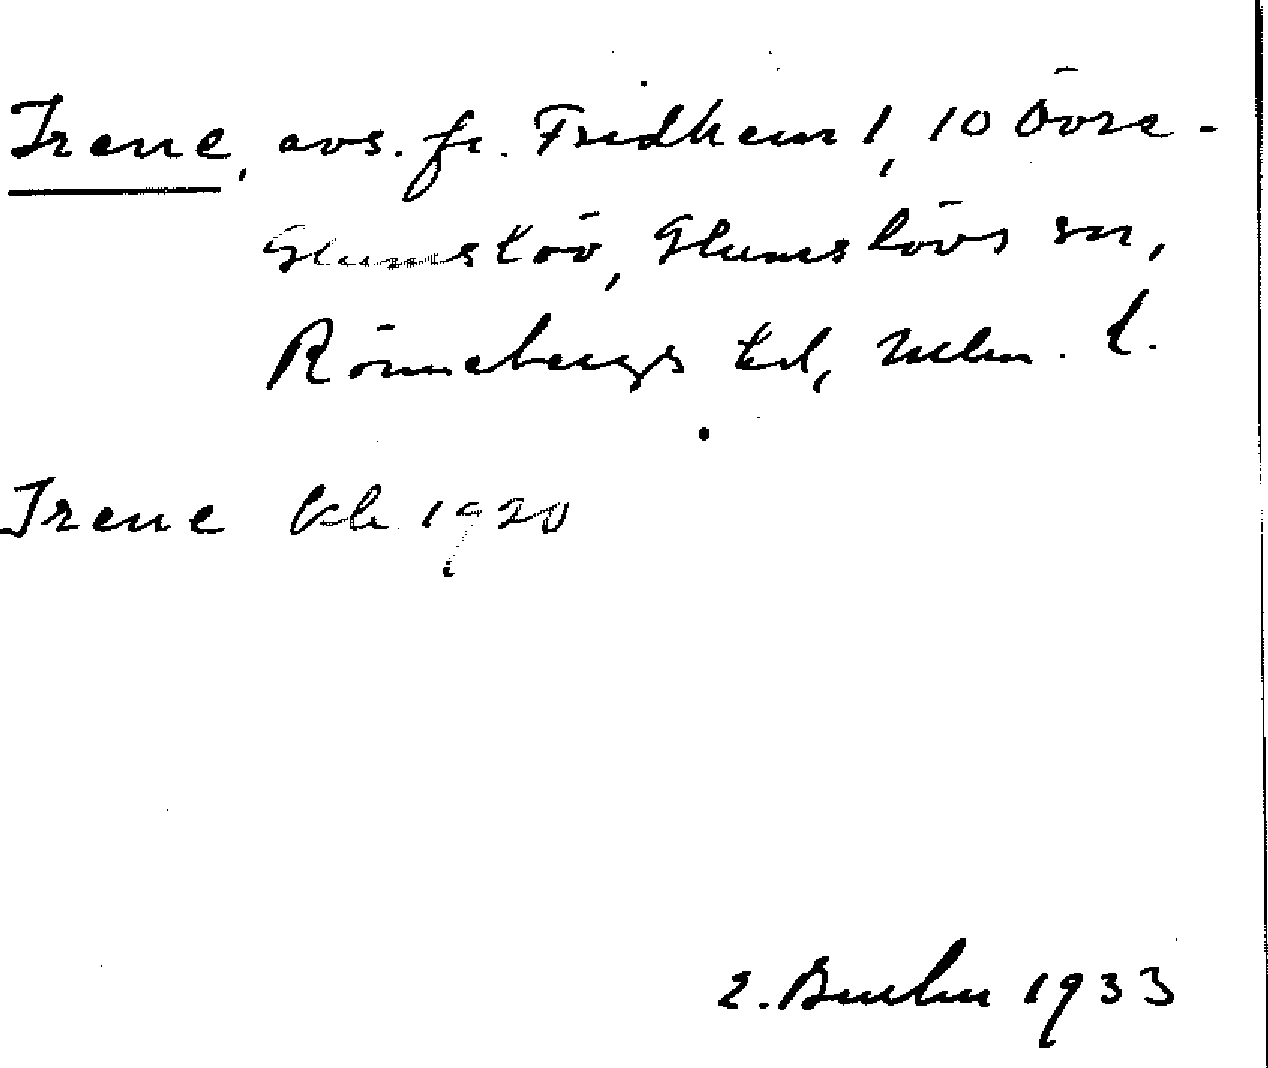 Irene, avs. fr. Fridhem 1, 10 Övre-
Glumslöv, Glumslövs sn,
Rönnebergs hd, Malm. l.
Irene 1920
1933